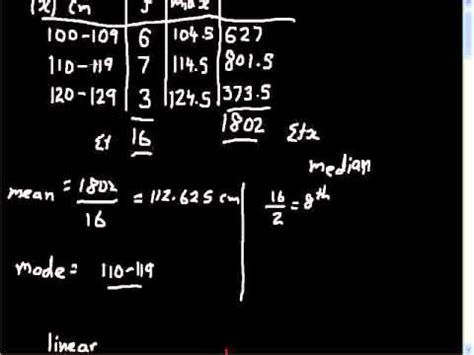 (x) cm f mid x
100-109 6 104.5 627
110-119 7 114.5 801.5
120-129 3 124.5 373.5
Σf 16 1802 Σfx
median
mean = 1802/16 = 112.625 cm
16/2 = 8th
mode = 110-119
linear